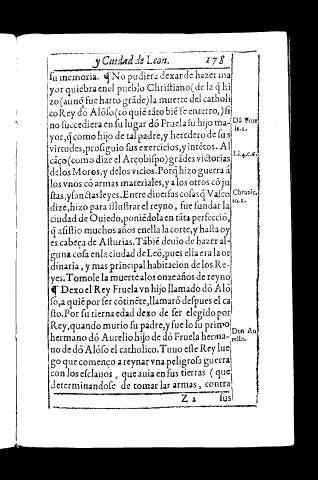 y Ciudad de Leon. 178
su memoria. ¶ No pudiera dexar de hazer ma
yor quiebra en el pueblo Christiano (de la q̃ hi
zo (aunq̃ fue harto grãde) la muerte del catholi
co Rey dõ Alõso (cõ quiẽ tãto biẽ se enterro,) si
no succediera en su lugar dõ Fruela su hijo ma-
yor, q̃ como hijo de tal padre, y heredero de sus
virtudes, prosiguio sus exercicios, y intẽtos. Al
cãço (como dize el Arçobispo) grãdes victorias
de los Moros, y de los vicios. Porq̃ hizo guerra á
los vnos cõ armas materiales, y a los otros cõ ju
stas, y sanctas leyes. Entre diuersas cosas q̃ Vaseo
dize, hizo para illustrar el reyno, fue fundar la
ciudad de Ouiedo, poniẽdola en tãta perfeciõ,
q̃ asistio muchos años en ella la corte, y hasta oy
es cabeça de Asturias. Tãbiẽ deuio de hazer al-
guna cosa en la ciudad de Leõ, pues ella era la or
dinaria, y mas principal habitacion de los Re-
yes. Tomole la muerte a los onze años de reyno
¶ Dexo el Rey Fruela vn hijo llamado dõ Alõ
so, a quiẽ por ser cõtinẽte, llamarõ despues el ca
sto. Por su tierna edad dexo de ser elegido por
Rey, quando murio su padre, y fue lo su primo
hermano dõ Aurelio hijo de dõ Fruela herma-
no de dõ Alõso el catholico. Tuuo este Rey lue-
go que començo a reynar vna peligrosa guerra
con los esclauos, que auia en sus tierras (que
determinandose de tomar las armas, contra
Z 2 sus
Dõ Frue
la.1.
Li.4.c.6.
Chronic.
to.1.
Don Au
relio.